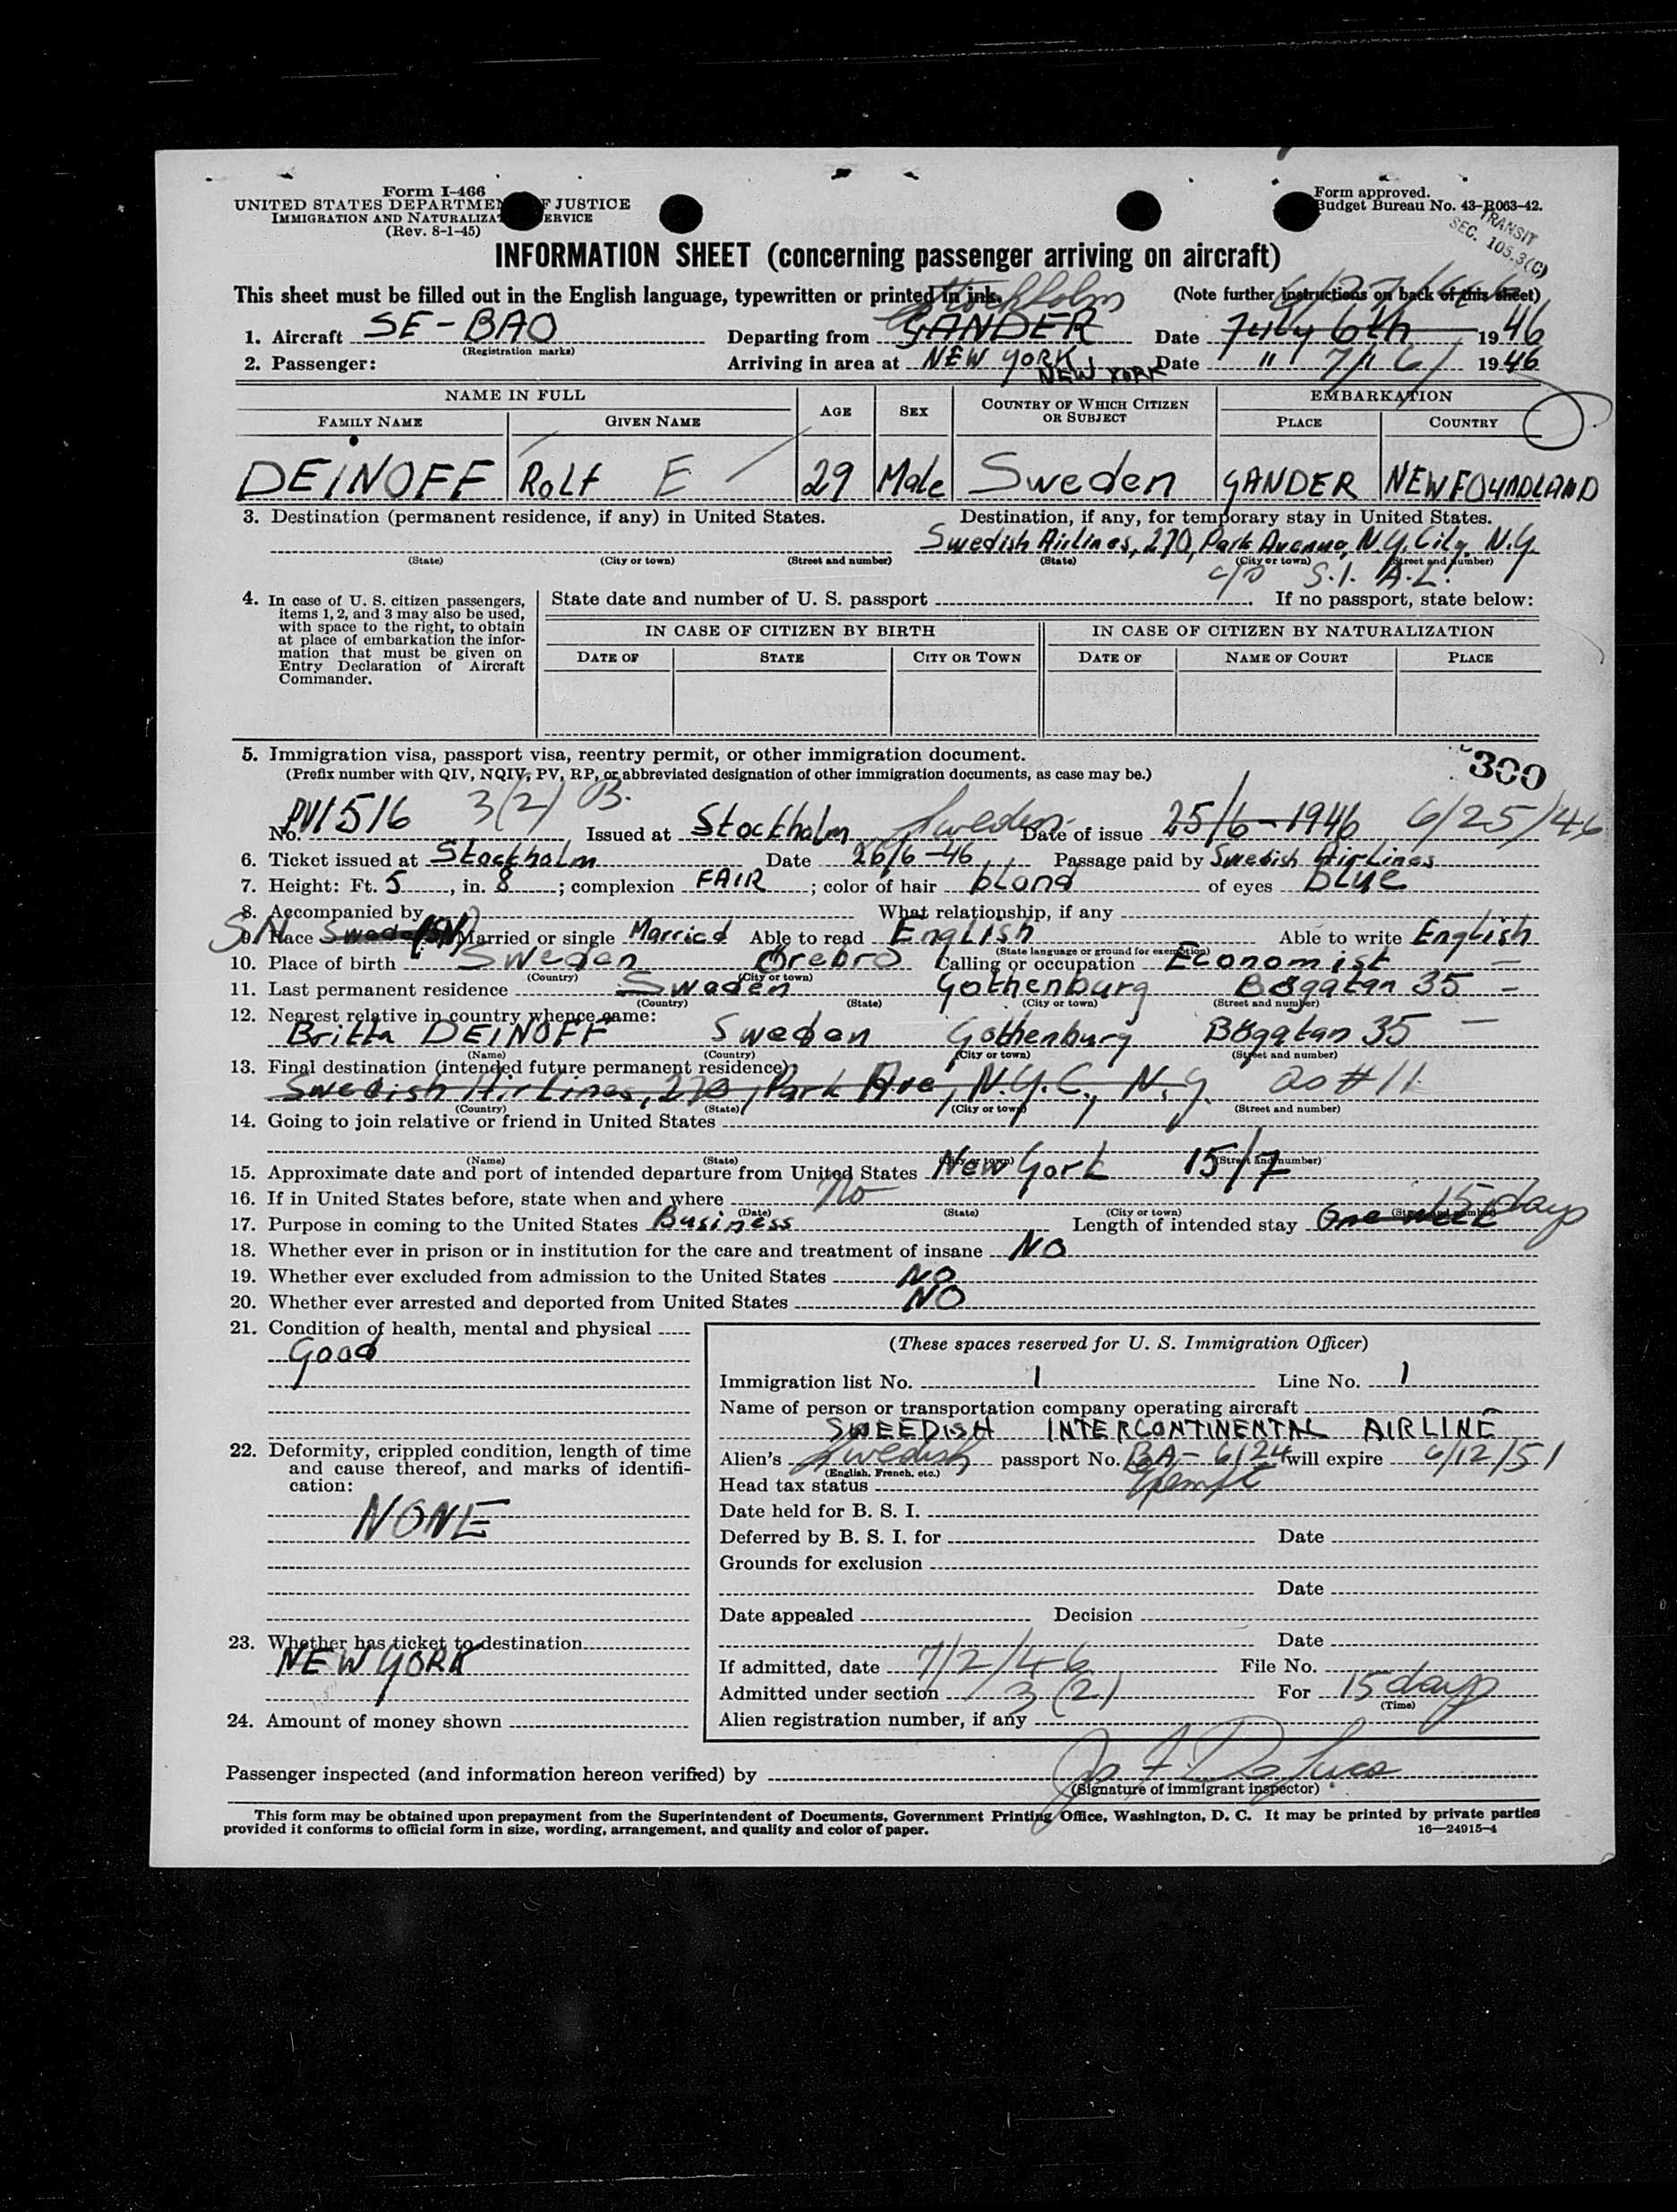 Form I-466
UNITED STATES DEPARTMENT OF JUSTICE
IMMIGRATION AND NATURALIZATION SERVICE
(Rev. 8-1-45)
Form approved.
Budget Bureau No. 43-R063-42.
TRANSIT
SEC. 105.3(C)
INFORMATION SHEET (concerning passenger arriving on aircraft)
This sheet must be filled out in the English language, typewritten or printed in ink. (Note further instructions on back of this sheet)
Stockholm
1. Aircraft SE-BAO Departing from GANDER Date July 6th 1946
(Registration marks)
2. Passenger: Arriving in area at NEW YORK, Date " 7/1 6/ 1946
NEW YORK
NAME IN FULL AGE SEX COUNTRY OF WHICH CITIZEN OR SUBJECT EMBARKATION
FAMILY NAME GIVEN NAME PLACE COUNTRY
DEINOFF Rolf E 29 Male Sweden GANDER NEWFOUNDLAND
3. Destination (permanent residence, if any) in United States. Destination, if any, for temporary stay in United States.
Swedish Airlines, 270, Park Avenue, N.Y. City, N.Y.
(State) (City or town) (Street and number) (State) (City or town) (Street and number)
c/o S.I. A.L.
4. In case of U. S. citizen passengers, items 1, 2, and 3 may also be used, with space to the right, to obtain at place of embarkation the information that must be given on Entry Declaration of Aircraft Commander.
State date and number of U. S. passport If no passport, state below:
IN CASE OF CITIZEN BY BIRTH IN CASE OF CITIZEN BY NATURALIZATION
DATE OF STATE CITY OR TOWN DATE OF NAME OF COURT PLACE
5. Immigration visa, passport visa, reentry permit, or other immigration document.
300
(Prefix number with QIV, NQIV, PV, RP, or abbreviated designation of other immigration documents, as case may be.)
3(2) B.
No. PV1516 Issued at Stockholm Sweden Date of issue 25/6-1946 6/25/46
6. Ticket issued at Stockholm Date 26/6-46 Passage paid by Swedish AirLines
7. Height: Ft. 5, in. 8; complexion FAIR; color of hair blond of eyes blue
8. Accompanied by What relationship, if any
SN 9. Race (SN) Married or single Married Able to read English Able to write English
(State language or ground for exemption)
10. Place of birth Sweden Örebro Calling or occupation Economist
(Country) (City or town)
11. Last permanent residence Sweden Gothenburg Bögatan 35
(Country) (State) (City or town) (Street and number)
12. Nearest relative in country whence came:
Britta DEINOFF Sweden Gothenburg Bögatan 35
(Name) (Country) (City or town) (Street and number)
13. Final destination (intended future permanent residence)
Swedish AirLines, 270, Park Ave, N.Y.C., N.Y. as #11
(Country) (State) (City or town) (Street and number)
14. Going to join relative or friend in United States
(Name) (State) (City or town) (Street and number)
15. Approximate date and port of intended departure from United States New York 15/7
16. If in United States before, state when and where No
(Date) (State) (City or town) (Street and number)
15 days
17. Purpose in coming to the United States Business Length of intended stay One week
18. Whether ever in prison or in institution for the care and treatment of insane NO
19. Whether ever excluded from admission to the United States NO
20. Whether ever arrested and deported from United States NO
21. Condition of health, mental and physical
Good
22. Deformity, crippled condition, length of time and cause thereof, and marks of identification:
NONE
23. Whether has ticket to destination
NEW YORK
24. Amount of money shown
(These spaces reserved for U. S. Immigration Officer)
Immigration list No. 1 Line No. 1
Name of person or transportation company operating aircraft
SWEEDISH INTERCONTINENTAL AIRLINE
Alien's Swedish passport No. BA-6124 will expire 6/12/51
(English, French, etc.)
Head tax status Exempt
Date held for B. S. I.
Deferred by B. S. I. for Date
Grounds for exclusion
Date
Date appealed Decision
Date
If admitted, date 7/2/46 File No.
Admitted under section 3(2) For 15 days
(Time)
Alien registration number, if any
Passenger inspected (and information hereon verified) by
(Signature of immigrant inspector)
This form may be obtained upon prepayment from the Superintendent of Documents, Government Printing Office, Washington, D. C. It may be printed by private parties
provided it conforms to official form in size, wording, arrangement, and quality and color of paper. 16—24915-4